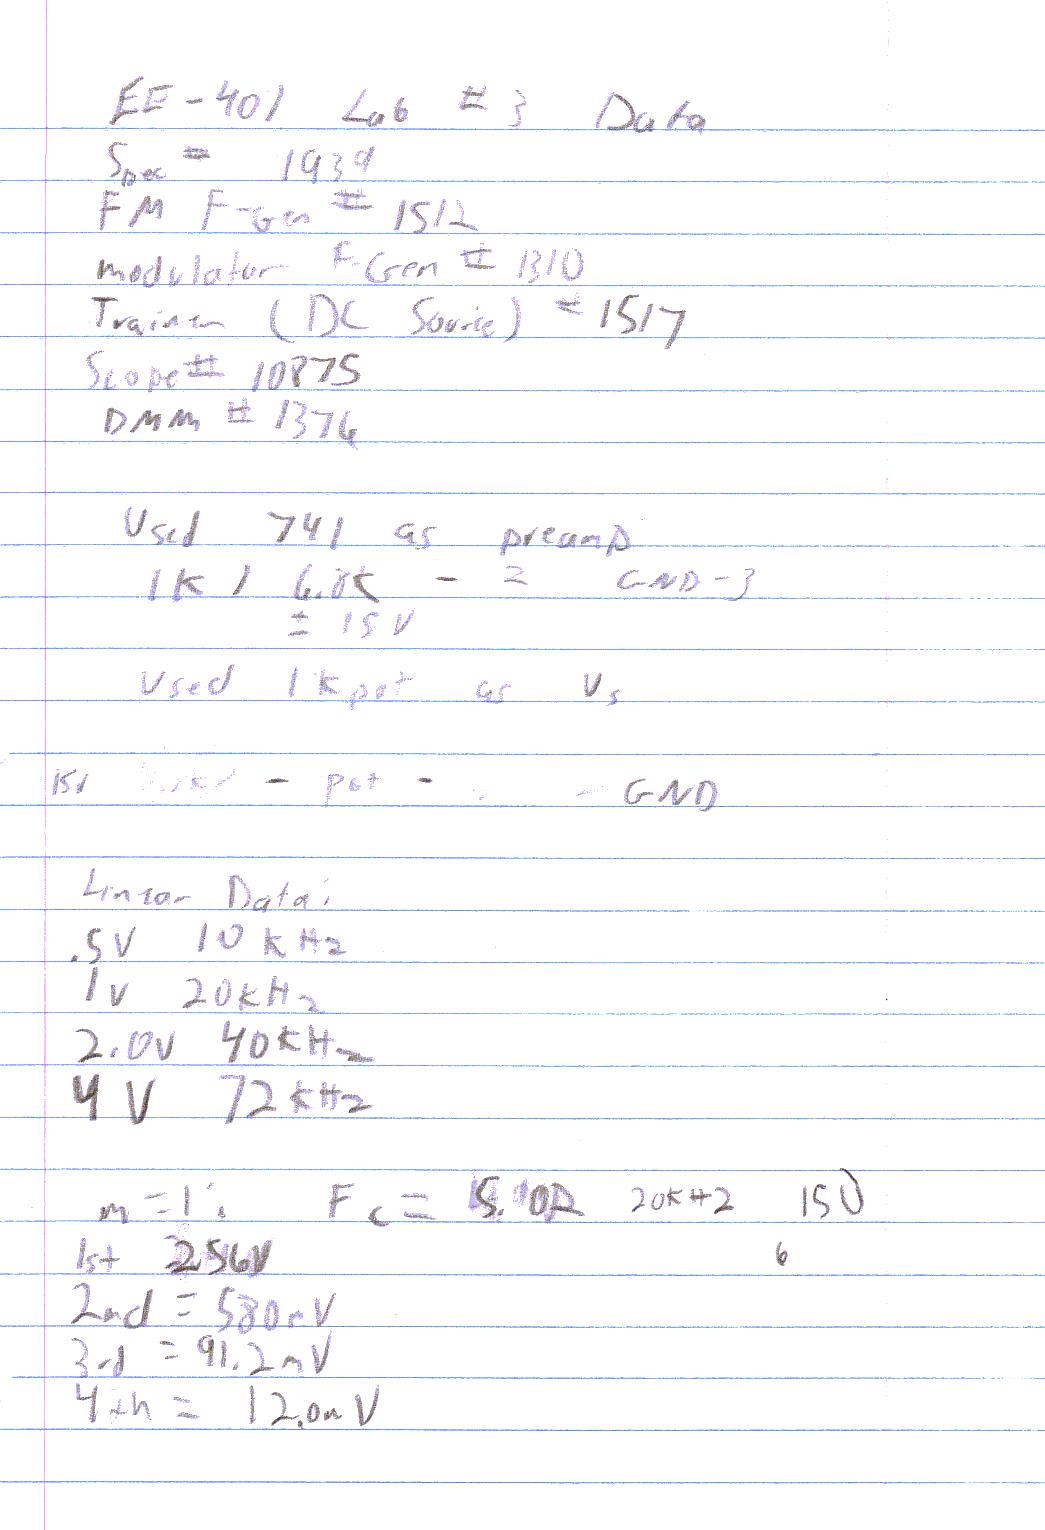 EE-401 Lab # 3 Data
Spec = 1939
FM F-Gen # 1512
modulator F-Gen # 1310
Trainer (DC Source) = 1517
Scope # 10875
DMM # 1376
Used 741 as preamp
1K / 6.8K - 2 GND-3
± 15V
Used 1K pot as Vs
15V - pot - - GND
Linear Data:
.5V 10 kHz
1V 20kHz
2.0V 40kHz
4V 72kHz
m=1: Fc = 20kHz 15V
1st 2.56V 6
2nd = 580mV
3rd = 91.2mV
4th = 12.0mV